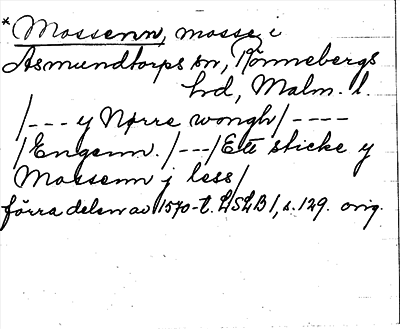 * Mossenn, mosse i
Asmundtorps sn, Rönnebergs
hd, Malm. l.
/--- y Nørre wongh/----
/Engenn. /---/Ett sticke y
Mossenn j less/
förra delen av 1570-t. LSLB 1, s. 129. orig.